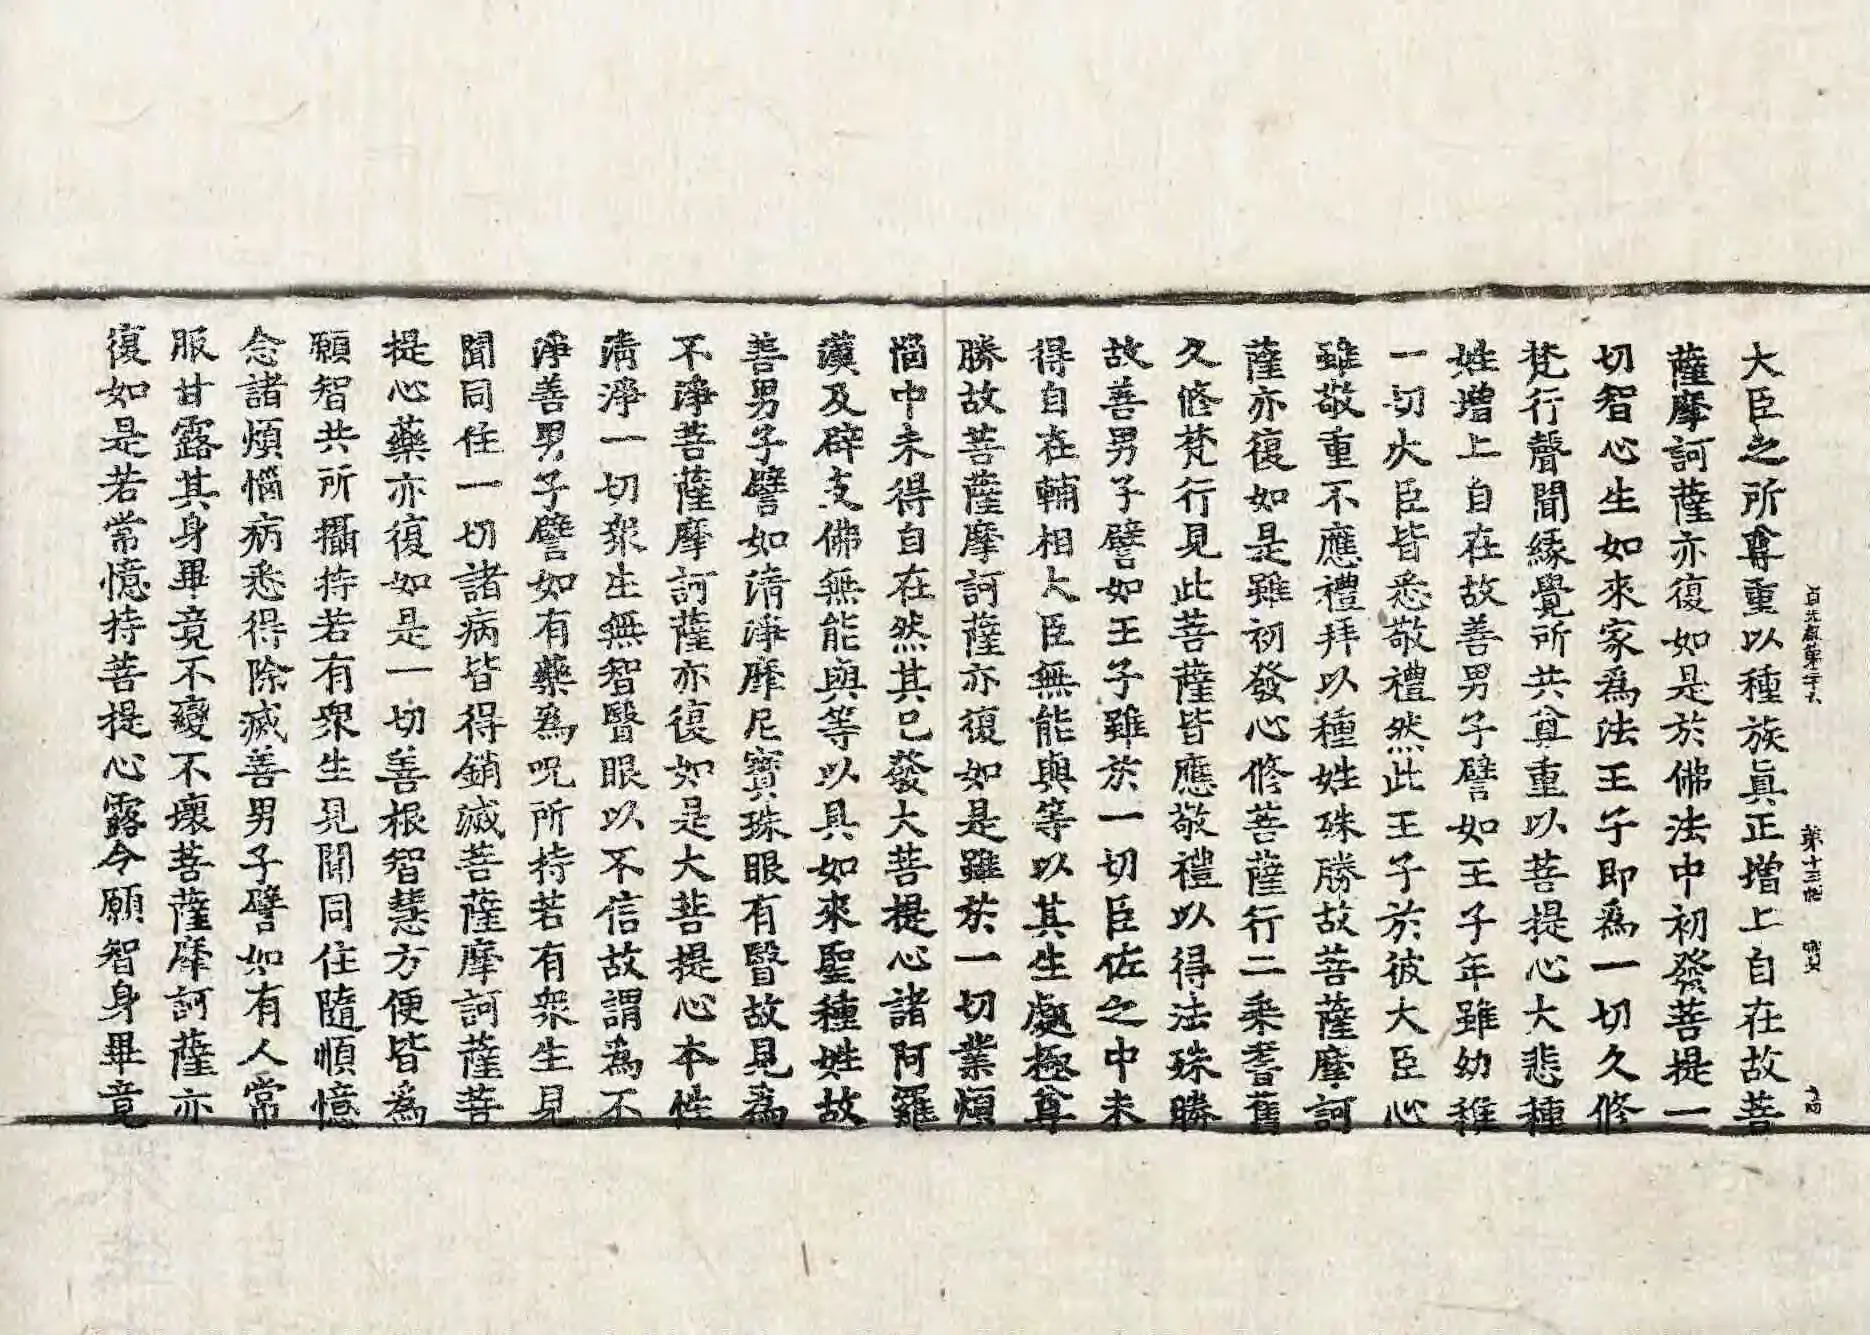 貞元經第三十六 第十三帙 寶 十四
大臣之所尊重以種族眞正增上自在故菩
薩摩訶薩亦復如是於佛法中初發菩提一
切智心生如來家為法王子即為一切久修
梵行聲聞緣覺所共尊重以菩提心大悲種
姓增上自在故善男子譬如王子年雖幼稚
一切大臣皆悉敬禮然此王子於彼大臣心
雖敬重不應禮拜以種姓殊勝故菩薩摩訶
薩亦復如是雖初發心修菩薩行二乘耆舊
久修梵行見此菩薩皆應敬禮以得法殊勝
故善男子譬如王子雖於一切臣佐之中未
得自在輔相大臣無能與等以其生處極尊
勝故菩薩摩訶薩亦復如是雖於一切業煩
惱中未得自在然其已發大菩提心諸阿羅
漢及辟支佛無能與等以具如來聖種姓故
善男子譬如清淨摩尼寶珠眼有瞖故見為
不淨菩薩摩訶薩亦復如是大菩提心本性
清淨一切眾生無智瞖眼以不信故謂為不
淨善男子譬如有藥為呪所持若有眾生見
聞同住一切諸病皆得銷滅菩薩摩訶薩菩
提心藥亦復如是一切善根智慧方便皆為
願智共所攝持若有眾生見聞同住隨順憶
念諸煩惱病悉得除滅善男子譬如有人常
服甘露其身畢竟不變不壞菩薩摩訶薩亦
復如是若常憶持菩提心露令願智身畢竟